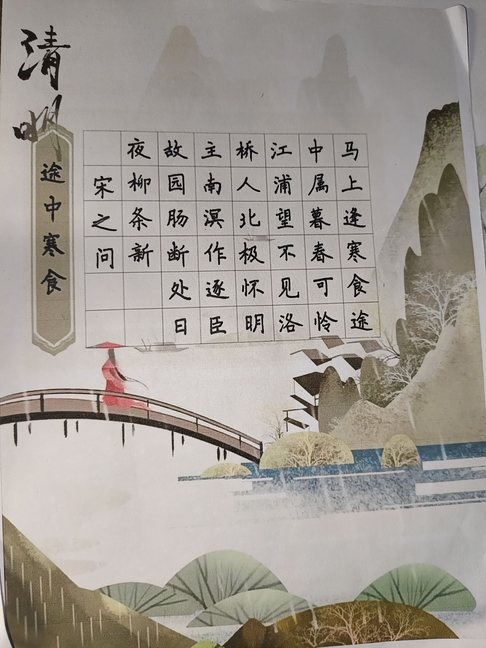 清明
途中寒食
马上逢寒食途
中属暮春可怜
江浦望不见洛
桥人北极怀明
主南溟作逐臣
故园肠断处日
夜柳条新
宋之问